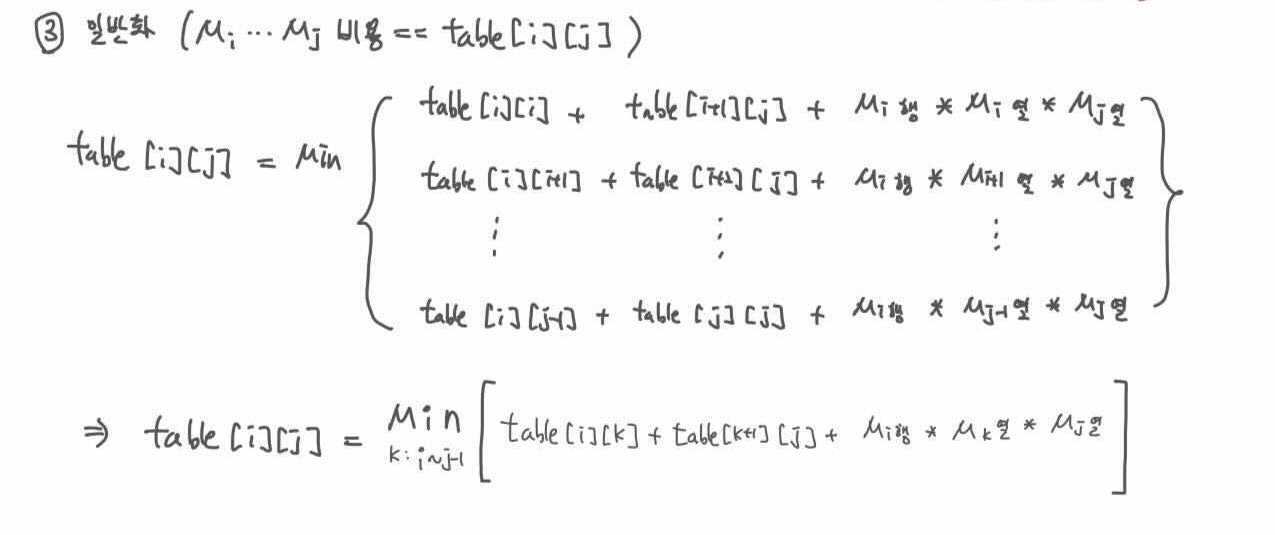 ③ 일반화 (Mi ... Mj 비용 == table[i][j])
table[i][i] + table[i+1][j] + Mi행 * Mi열 * Mj열
table[i][j] = Min
table[i][i+1] + table[i+2][j] + Mi행 * Mi+1열 * Mj열
⋮ ⋮ ⋮
table[i][j-1] + table[j][j] + Mi행 * Mj-1열 * Mj열
⇒ table[i][j] = Min [ table[i][k] + table[k+1][j] + Mi행 * Mk열 * Mj열 ]
k: i~j-1